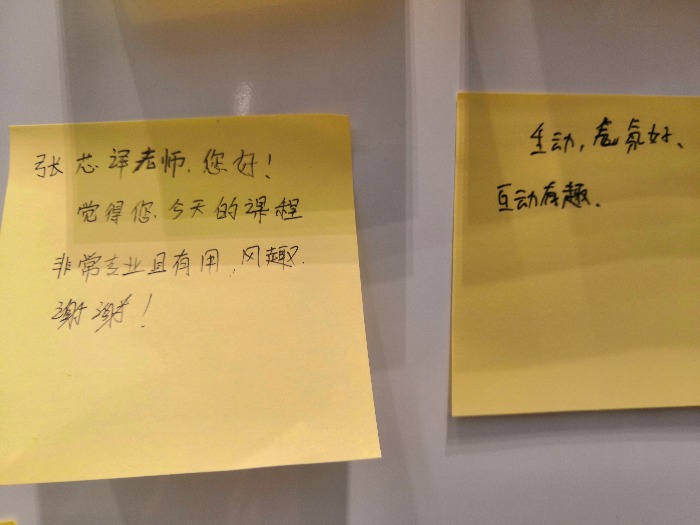 张芯译老师,您好!
觉得您今天的课程
非常专业且有用,风趣.
谢谢!
生动,氛氛好、
互动有趣.